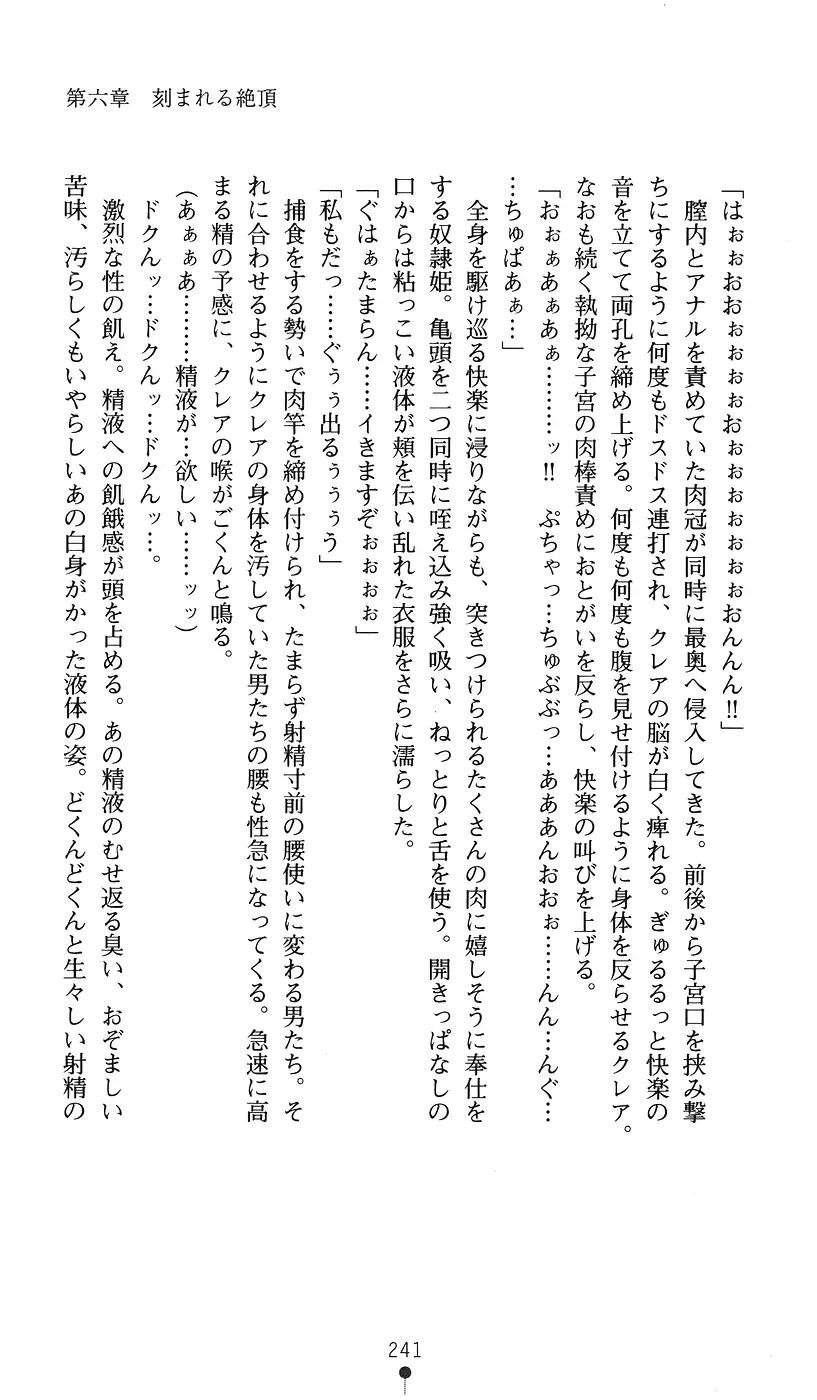 第六章　刻まれる絶頂
「はぉぉおおぉぉぉぉおぉぉぉぉぉぉおんんん‼」
　膣内とアナルを責めていた肉冠が同時に最奥へ侵入してきた。前後から子宮口を挟み撃
ちにするように何度もドスドス連打され、クレアの脳が白く痺れる。ぎゅるるっと快楽の
音を立てて両孔を締め上げる。何度も何度も腹を見せ付けるように身体を反らせるクレア。
なおも続く執拗な子宮の肉棒責めにおとがいを反らし、快楽の叫びを上げる。
「おぉぁあぁあぁ………ッ‼　ぷちゃっ…ちゅぶぶっ…あああんおおぉ……んん…んぐ…
…ちゅぱあぁ…」
　全身を駆け巡る快楽に浸りながらも、突きつけられるたくさんの肉に嬉しそうに奉仕を
する奴隷姫。亀頭を二つ同時に咥え込み強く吸い、ねっとりと舌を使う。開きっぱなしの
口からは粘っこい液体が頬を伝い乱れた衣服をさらに濡らした。
「ぐはぁたまらん……イきますぞぉぉぉぉ」
「私もだっ……ぐぅぅ出るぅぅぅう」
　捕食をする勢いで肉竿を締め付けられ、たまらず射精寸前の腰使いに変わる男たち。そ
れに合わせるようにクレアの身体を汚していた男たちの腰も性急になってくる。急速に高
まる精の予感に、クレアの喉がごくんと鳴る。
（あぁぁあ………精液が…欲しい……ッッ）
　ドクんッ…ドクんッ…ドクんッ…。
　激烈な性の飢え。精液への飢餓感が頭を占める。あの精液のむせ返る臭い、おぞましい
苦味、汚らしくもいやらしいあの白身がかった液体の姿。どくんどくんと生々しい射精の
241